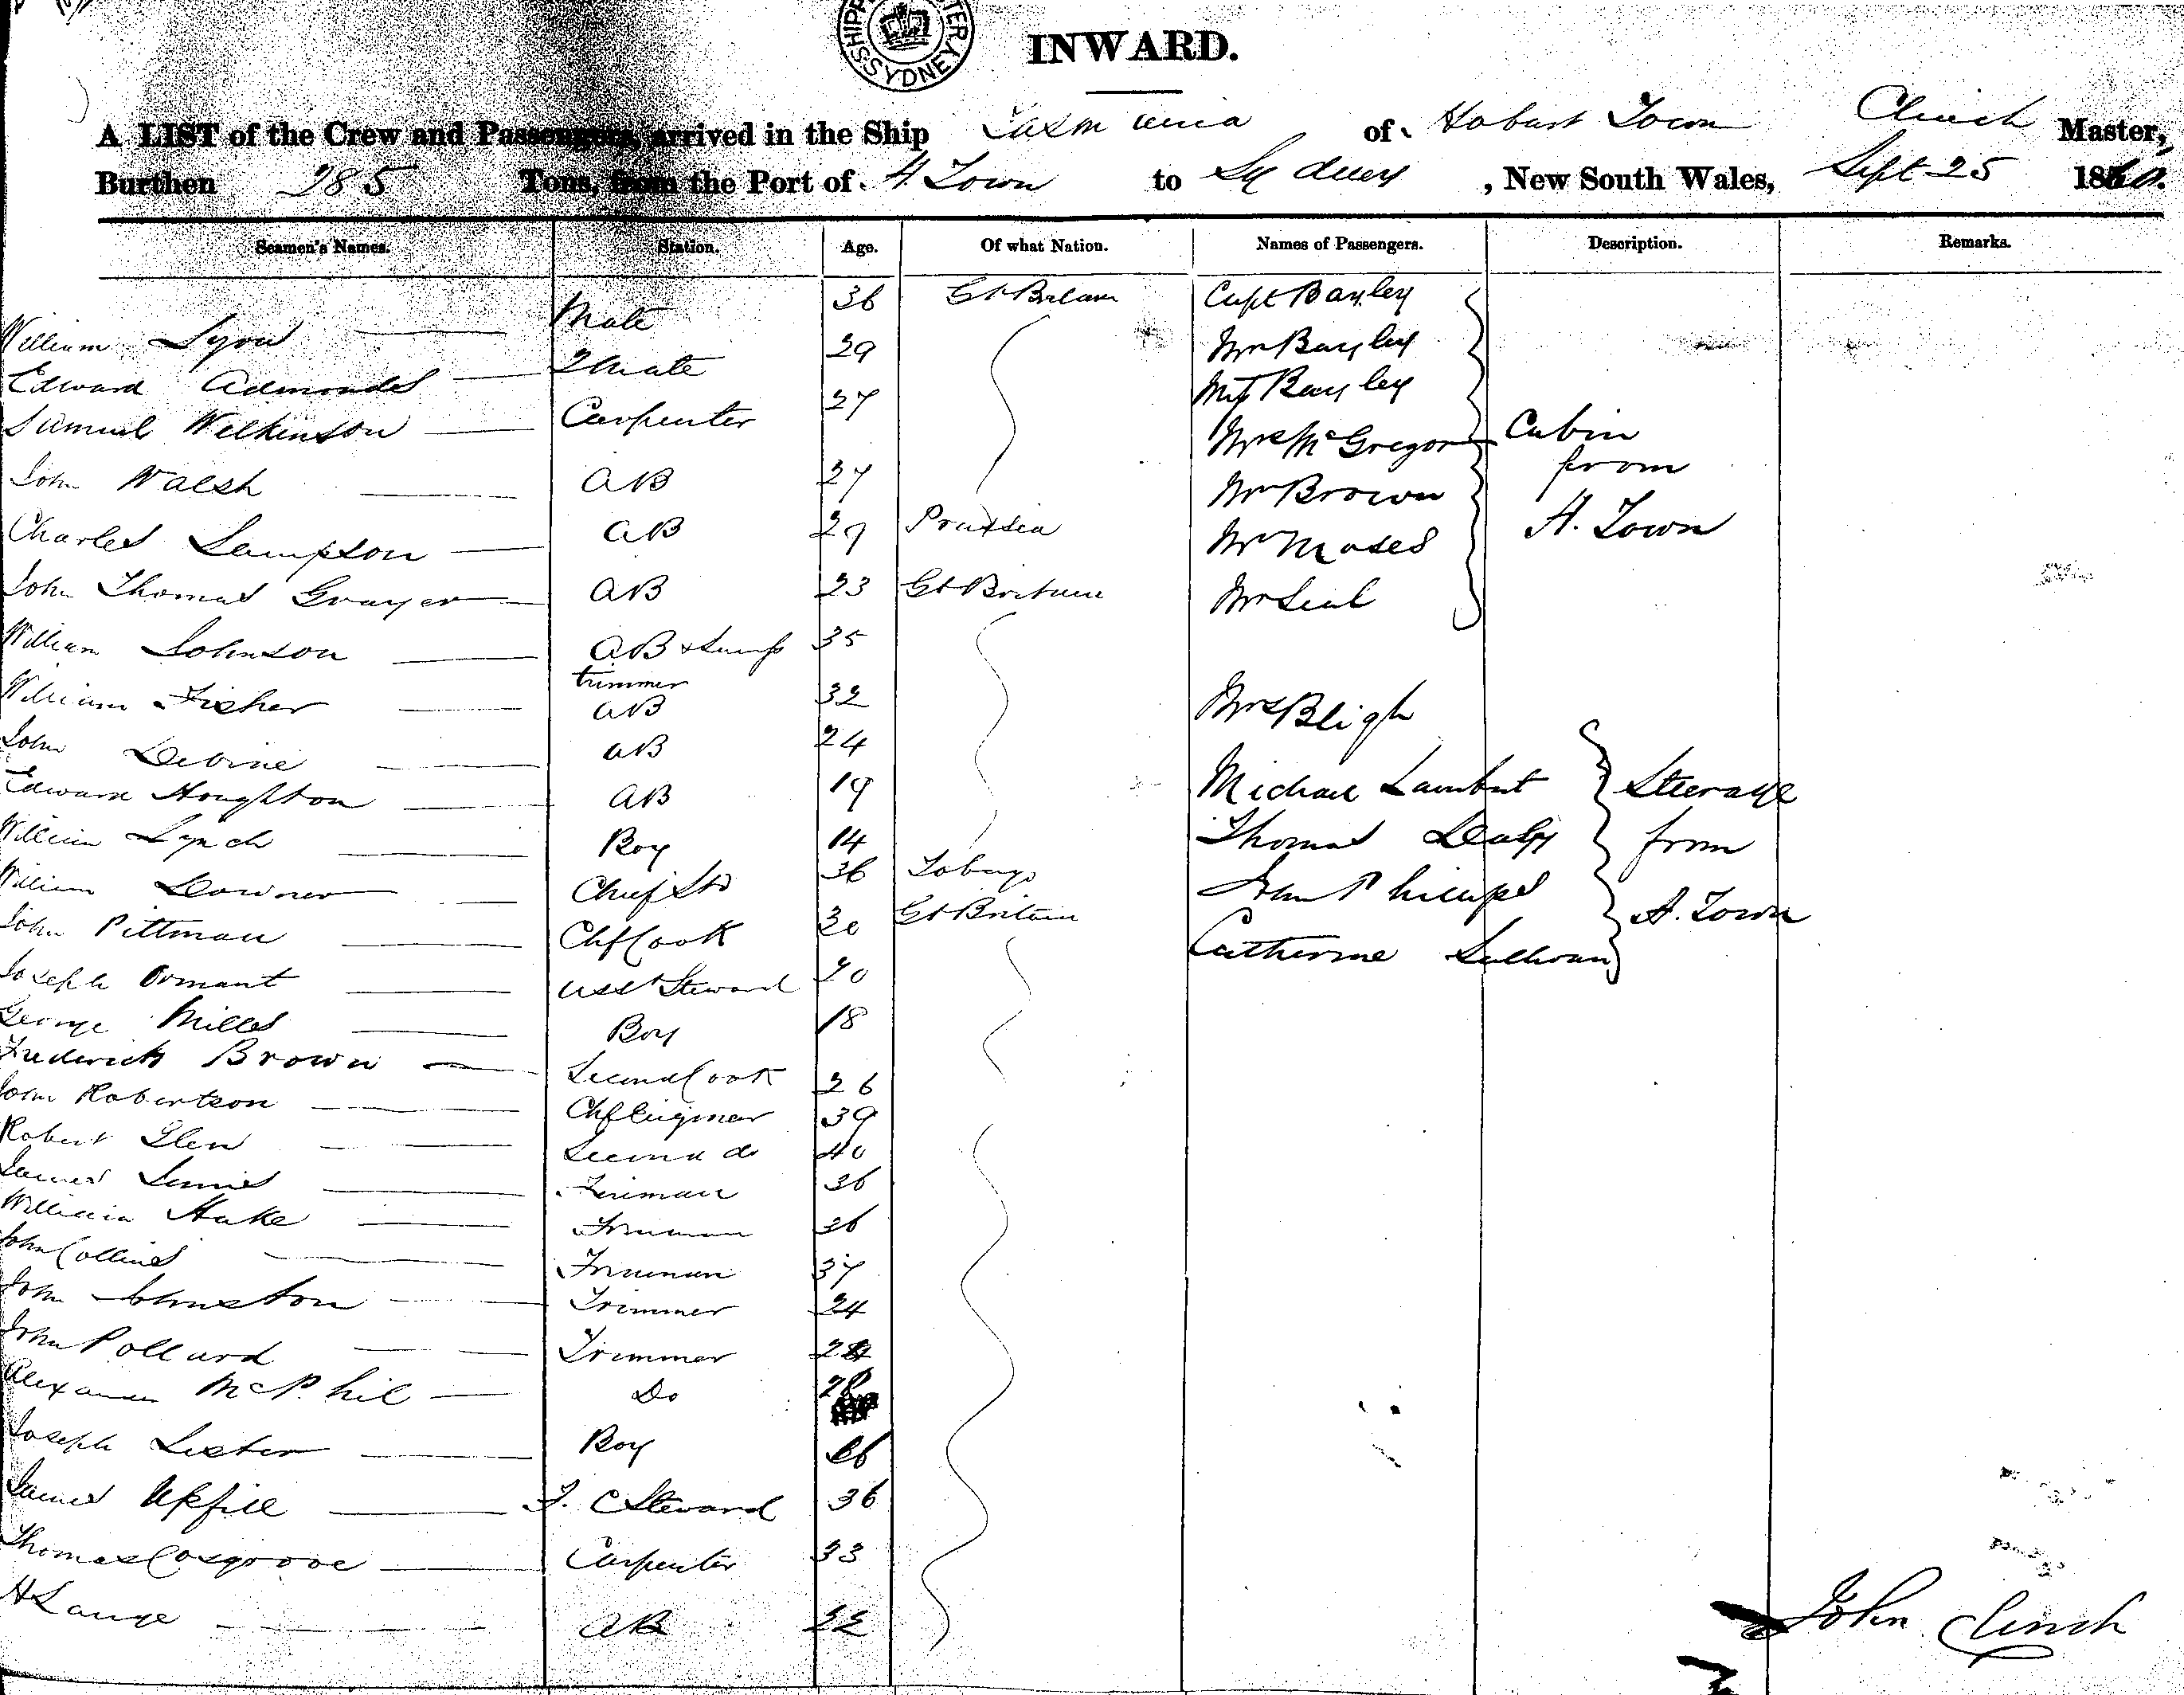 SHIPP STER SYDNEY
INWARD.
A LIST of the Crew and Passengers, arrived in the Ship Tasmania of Hobart Town Clinch Master,
Burthen 285 Tons, from the Port of H. Town to Sydney, New South Wales, Sept 25 1860.
Seamen's Names. Station. Age. Of what Nation. Names of Passengers. Description. Remarks.
William Lyon Mate 36 Gt Britain Capt Bayley
Edward Admonds 2 Mate 29 Mr Bayley
Samuel Wilkinson Carpenter 27 Bayley
Mrs McGregor Cabin
John Walsh AB 27 Mr Brown from
Charles Sampson AB 29 Prussia Mr Moses H. Town
John Thomas Grayer AB 23 Gt Britain Mr Seal
William Johnson AB & Lamp trimmer 35
William Fisher AB 32 Mrs Bligh
John Devine AB 24
Edward Houghton AB 19 Michael Lambert Steerage
William Lynch Boy 14 Thomas Daly from
William Downer Chief Std 36 Tobago John Phillips H. Town
John Pittman Chf Cook 30 Gt Britain Catherine Sullivan
Joseph Ormant Asst Steward 20
George Mills Boy 18
Frederick Brown Second Cook 26
John Robertson Chf Engineer 39
Robert Glen Second do 40
James Fireman 36
William Hake Fireman 36
John Collins Fireman 37
John Johnston Trimmer 24
John Pollard Trimmer
Alexander McPhil Do 28
Joseph Lister Boy
James Upfill F. C Steward 36
Thomas Cosgrove Carpenter 33
H Lange AB 22
John Clinch